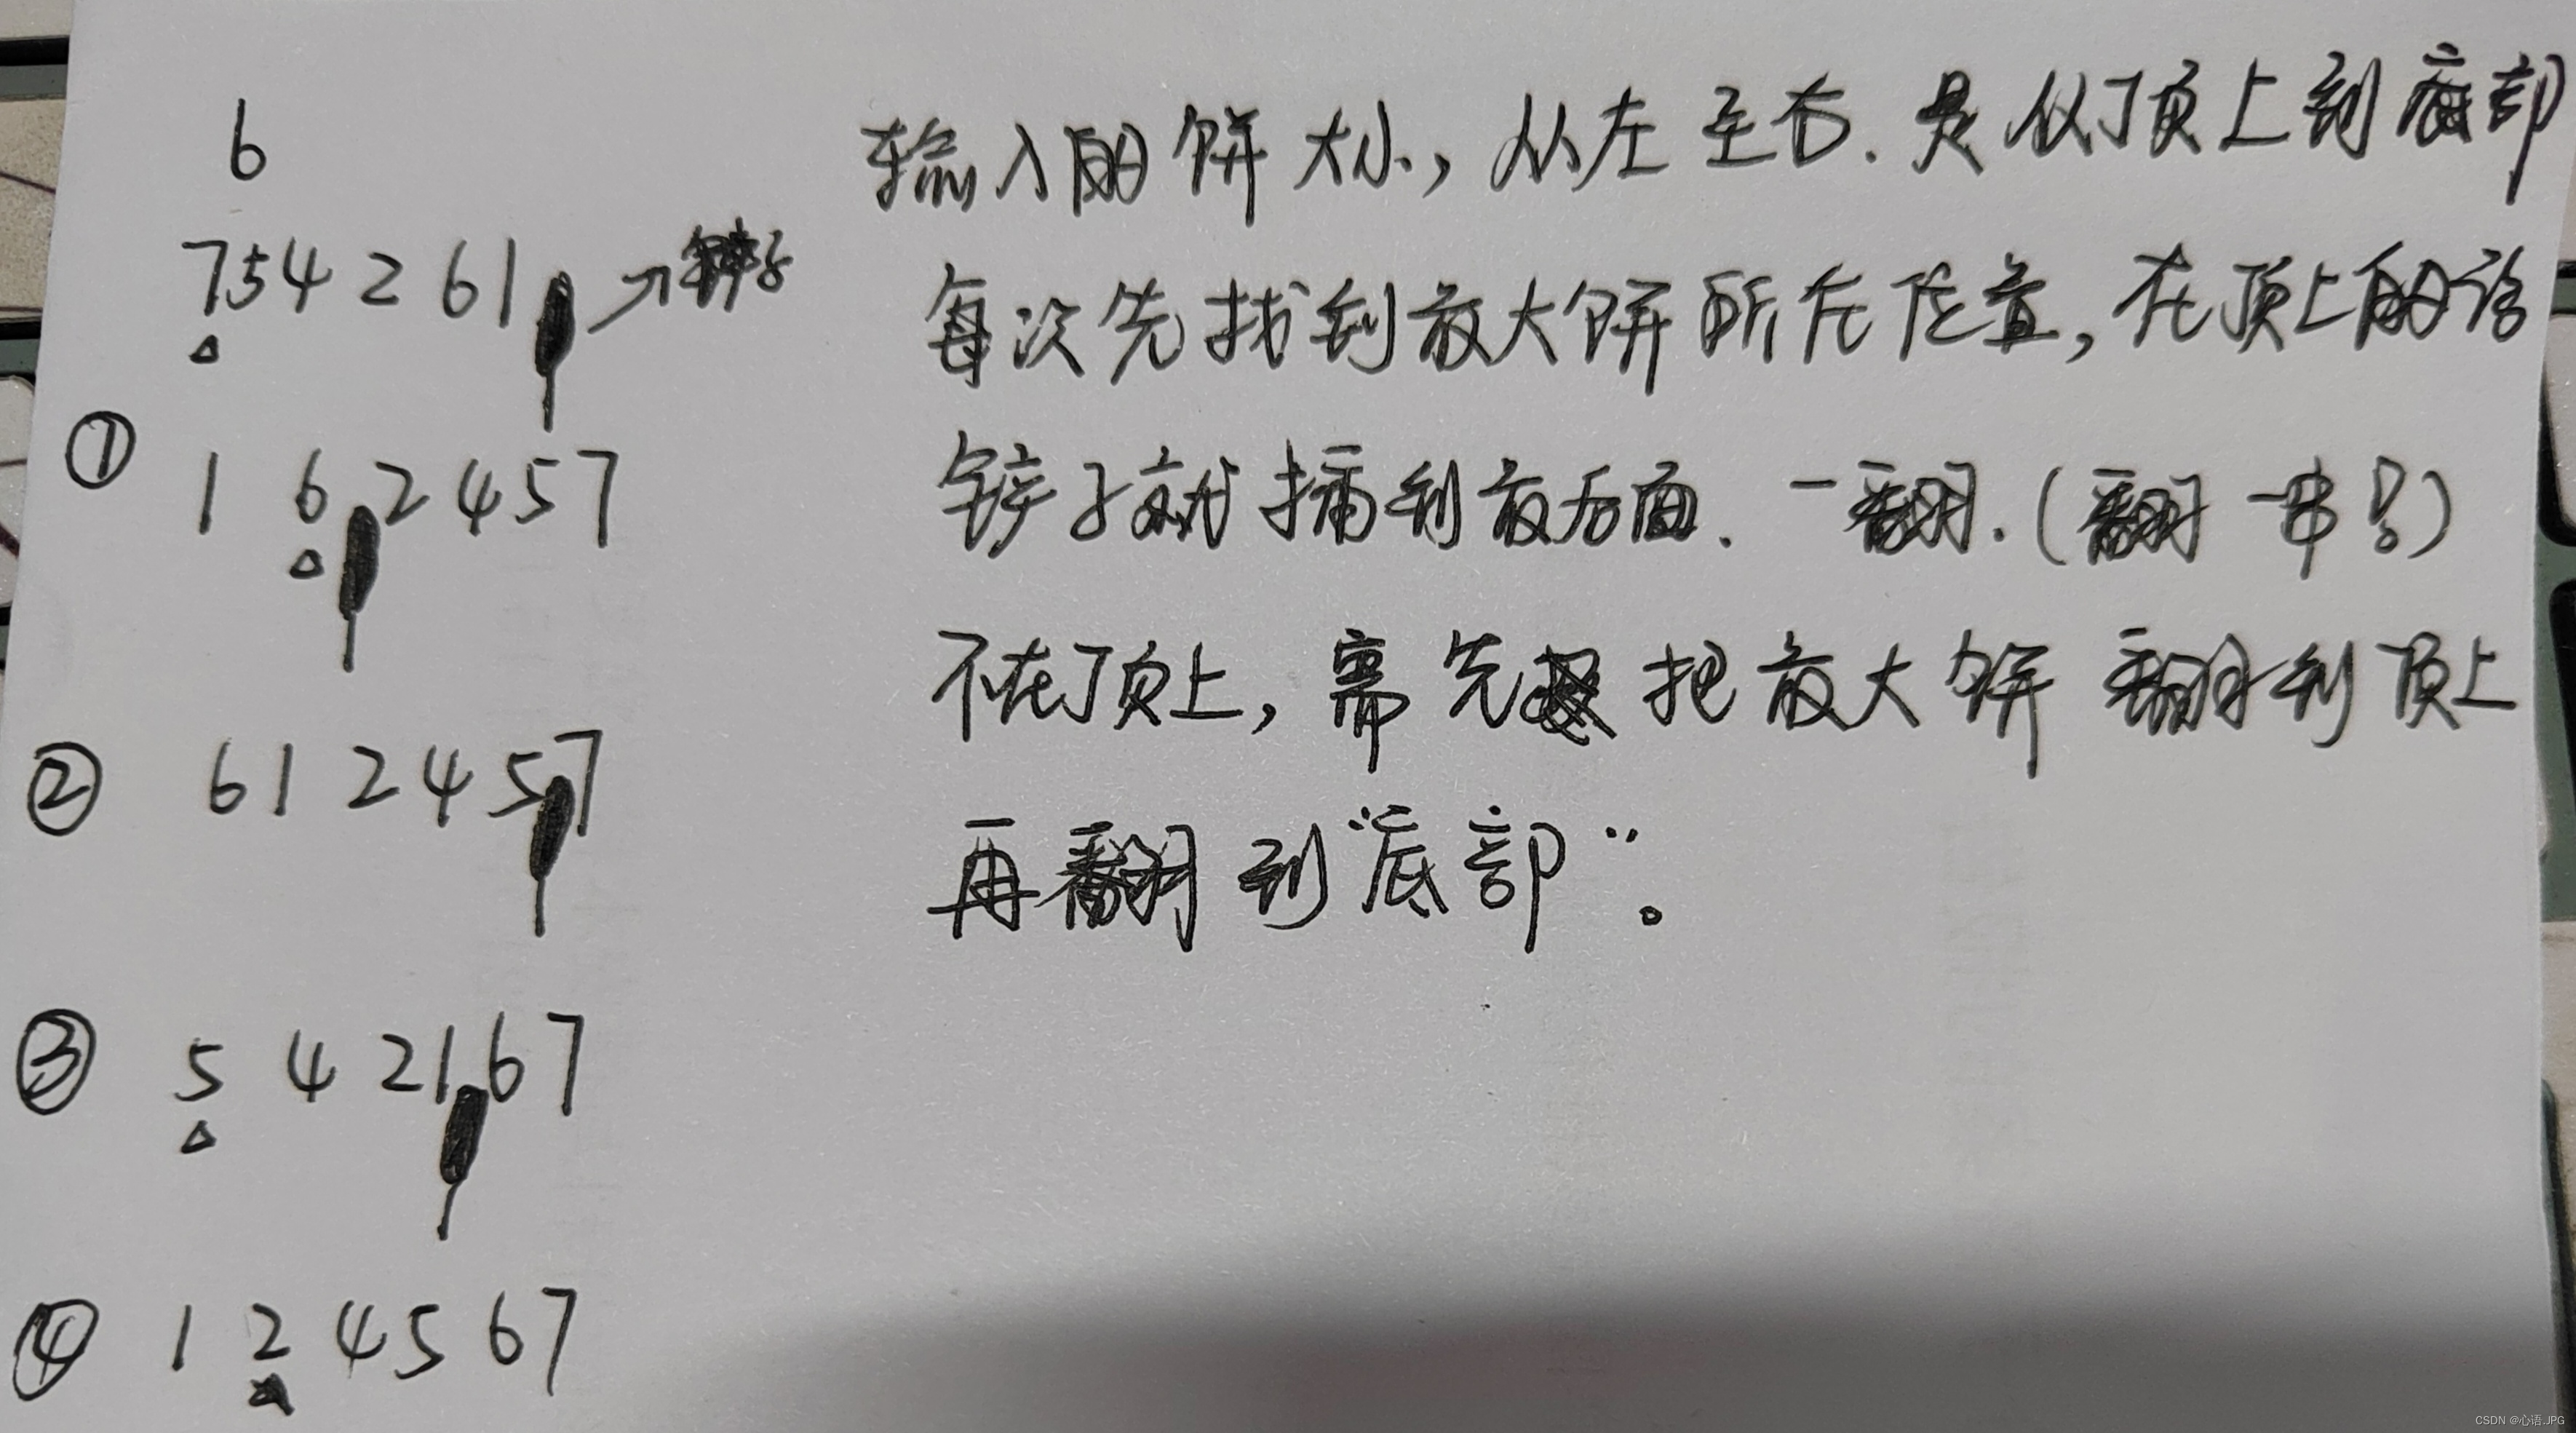 6
7 5 4 2 6 1 → 铲子
① 1 6 2 4 5 7
② 6 1 2 4 5 7
③ 5 4 2 1 6 7
④ 1 2 4 5 6 7
输入的饼大小，从左至右.是从顶上到底部
每次先找到最大饼所在位置，在顶上的话
铲子就插到最后面.一翻.(翻一串!)
不在顶上，需先把最大饼翻到顶上
再翻到“底部”。
CSDN @心语.JPG